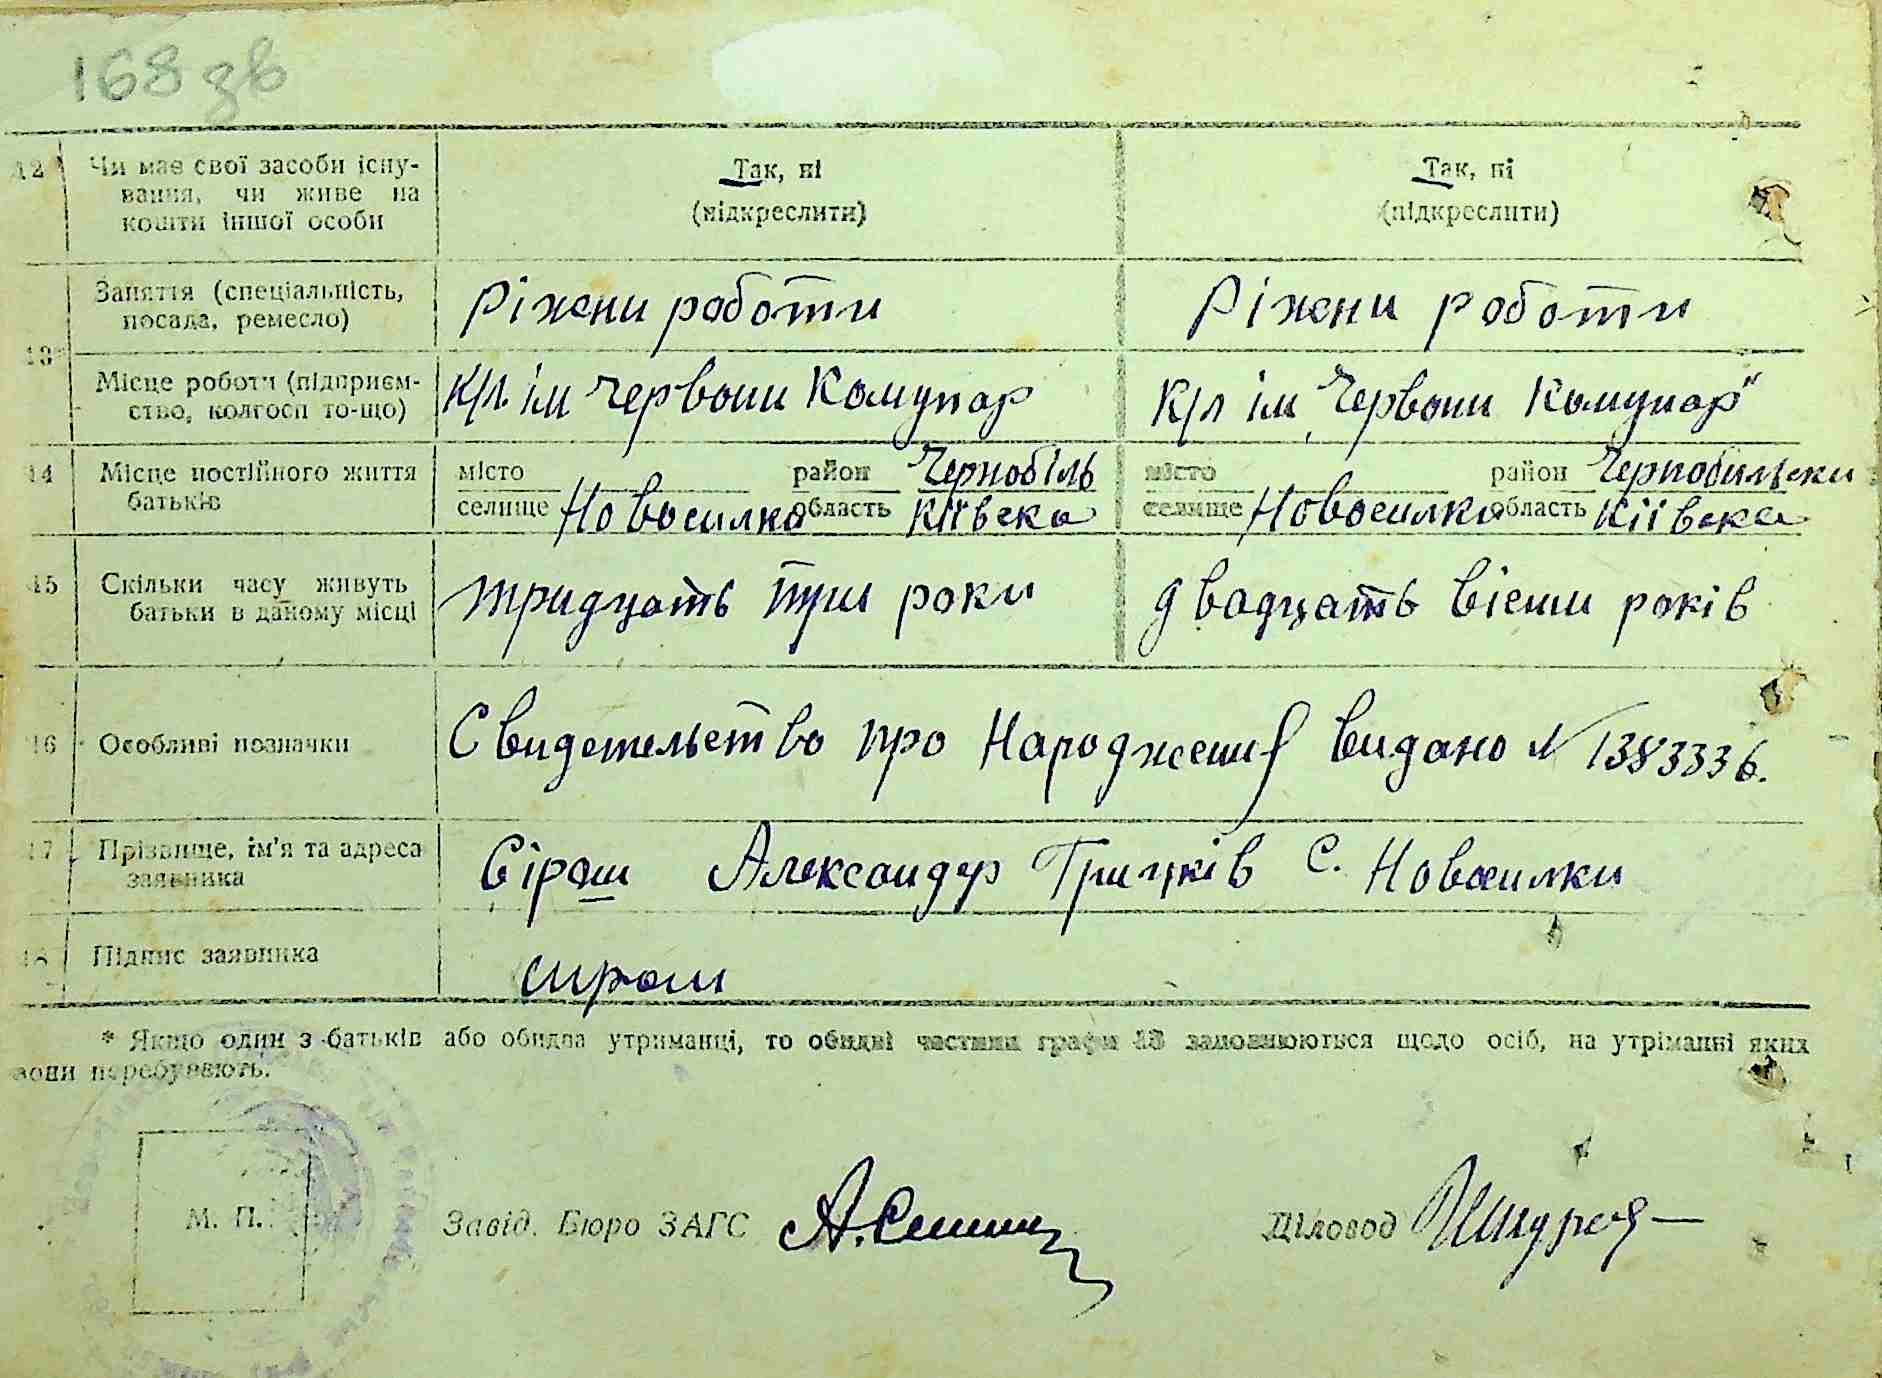 168 зв
12 Чи має свої засоби існу- Так, ні Так, ні
вання, чи живе на (підкреслити) (підкреслити)
кошти іншої особи
Заняття (спеціальність, Ріжни роботи Ріжни роботи
посада, ремесло)
13
Місце роботи (підприєм- К/г. ім Червони Комунар К/г ім „Червони Комунар"
ство, колгосп то-що)
14 Місце постійного життя місто район Чернобіль місто район Чернобильски
батьків селище Новосилка область Київска селище Новосилки область Київска
15 Скільки часу живуть тридцать три роки двадцать вісим років
батьки в даному місці
16 Особливі позначки Свидетельство про Народження видано № 1383336.
17 Прізвище, ім'я та адреса Сірош Александр Грицків С. Новосилки
заявника
18 Підпис заявника сирош
* Якщо один з батьків або обидва утриманці, то обидві частини графи 13 заповнюються щодо осіб, на утріманні яких
вони перебувають.
М. П. Завід. Бюро ЗАГС Діловод